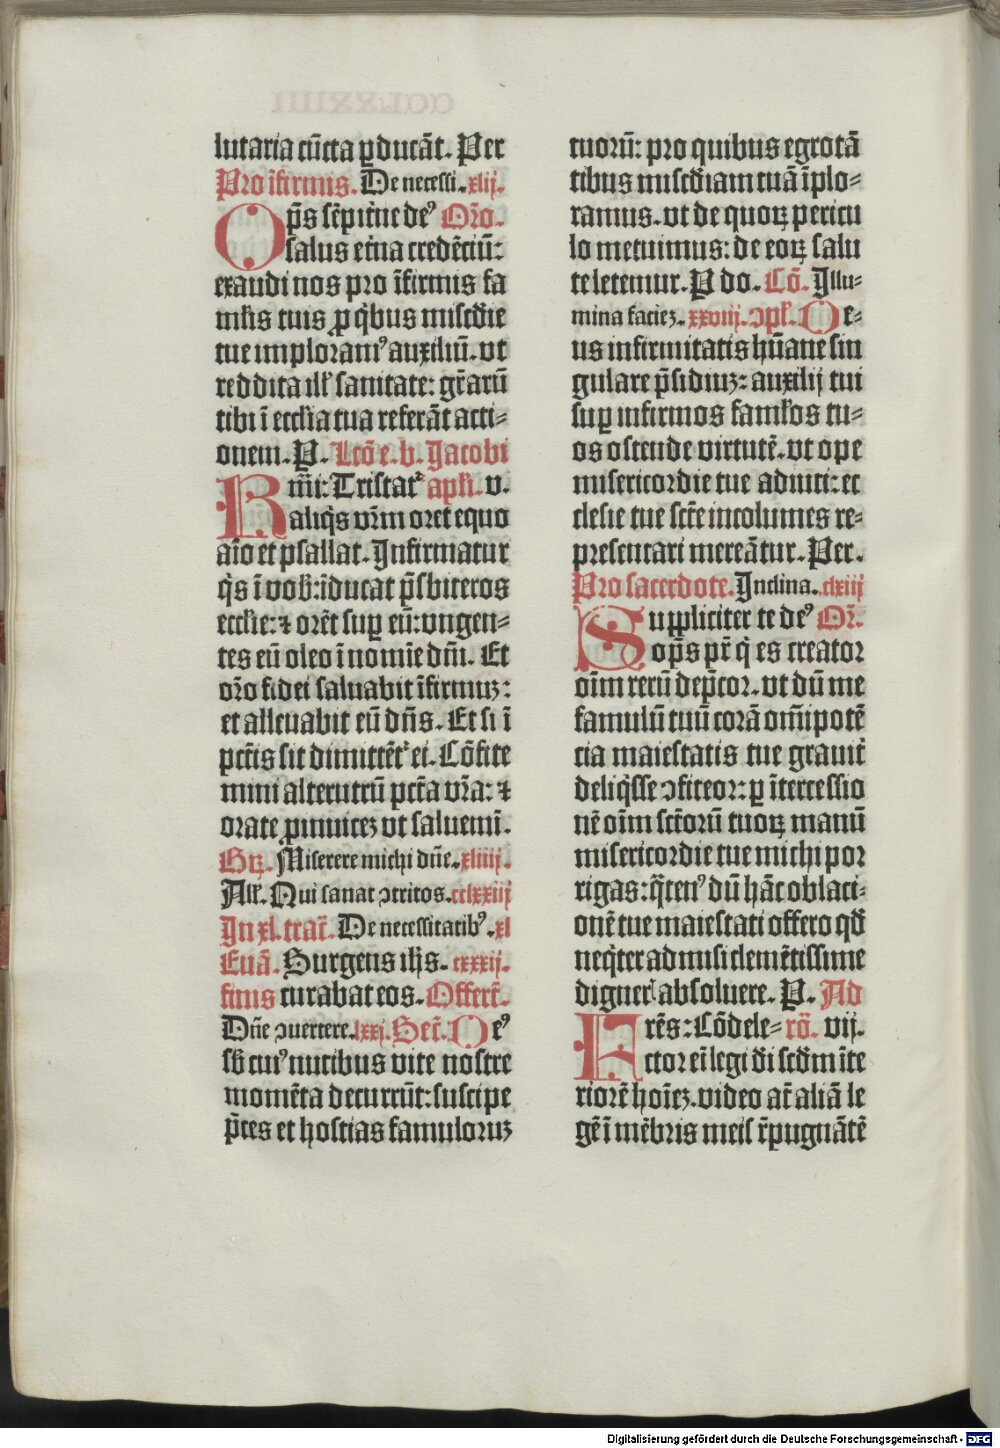 lutaria cūcta ꝑducāt. Per
Pro īfirmis. De necessi. xlij.
Oṗs sēpit̄ne deꝰ Or̄o.
salus et̄na credēciū:
exaudi nos pro īfirmis fa
ml̄is tuis ꝓ qͥbus mis̄cdie
tue imploramꝰ auxiliū. vt
reddita ill̓ sanitate: gr̄arū
tibi ī eccl̄ia tua referāt acti⸗
onem. P. Lcō e. b. Jacobi
Rm̄i: Tristat᷑ apl̄i. v.
aliqͥs vr̄m oret equo
aīo et psallat. Infirmatur
qͥs ī vob̓: īducat p̄sbiteros
eccl̄ie: ⁊ orēt suꝑ eū: vngen⸗
tes eū oleo ī nomīe dn̄i. Et
or̄o fidei saluabit īfirmuꝫ:
et alleuabit eū dn̄s. Et si ī
pct̄is sit dimittēt᷑ ei. Cōfite
mini alterutrū pct̄a vr̄a: ⁊
orate ꝓ inuiceꝫ vt saluemī.
Gꝝ. Miserere michi dn̄e. xliiij.
All̓. Qui sanat ↄtritos. cclxxiij
In xl. trac̄t. De necessitatibꝰ. xl
Euā. Surgens ih̄s. cxxxij.
finis curabat eos. Offert̄.
Dn̄e ↄuertere. lxxj. Sec̄t. Deꝰ
sb̄ cuiꝰ nutibus vite nostre
momēta decurrūt: suscipe
p̄ces et hostias famuloruꝫ
tuorū: pro quibus egrotā
tibus mis̄cdiam tuā īplo⸗
ramus. vt de quoꝝ pericu
lo metuimus: de eoꝝ salu
te letemur. P do. Cō. Illu⸗
mina facieꝫ. xxviij. ↄpl̓. De⸗
us infirmitatis hūane sin
gulare p̄sidiuꝫ: auxilij tui
suꝑ infirmos faml̄os tu⸗
os ostende virtutē. vt ope
misericordie tue adiuti: ec
clesie tue sct̄e incolumes re⸗
presentari mereātur. Per.
Pro sacerdote. Inclina. clxiij
Suppliciter te deꝰ Or̄.
op̄s pr̄ q̇ es creator
oīm rerū dep̄cor. vt dū me
famulū tuū corā om̄ipotē
cia maiestatis tue grauit̄
deliqͥsse ↄfiteor: ꝑ ītercessio
nē oīm sct̄orū tuoꝝ manū
misericordie tue michi por
rigas: q̄tenꝰ dū hāc oblaci⸗
onē tue maiestati offero qd̄
neqͥter admisi clemētissime
digner̓ absoluere. P. Ad
Frēs: Cōdele⸗ rō. vij.
ctor eī legi di scd̄m īte
riorē hoīeꝫ. video at̄ aliā le
gē ī mēbris meis rēpugnātē
Digitalisierung gefördert durch die Deutsche Forschungsgemeinschaft - DFG